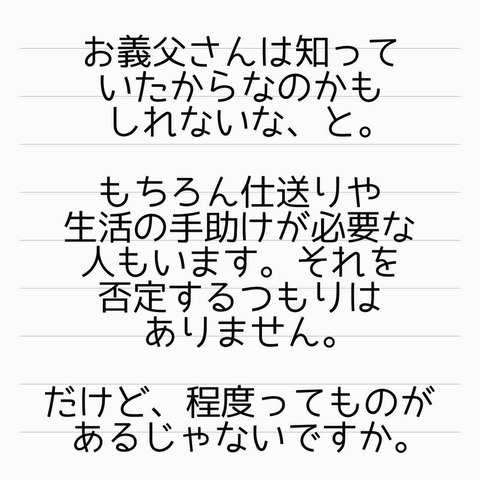 お義父さんは知って
いたからなのかも
しれないな、と。
もちろん仕送りや
生活の手助けが必要な
人もいます。それを
否定するつもりは
ありません。
だけど、程度ってものが
あるじゃないですか。